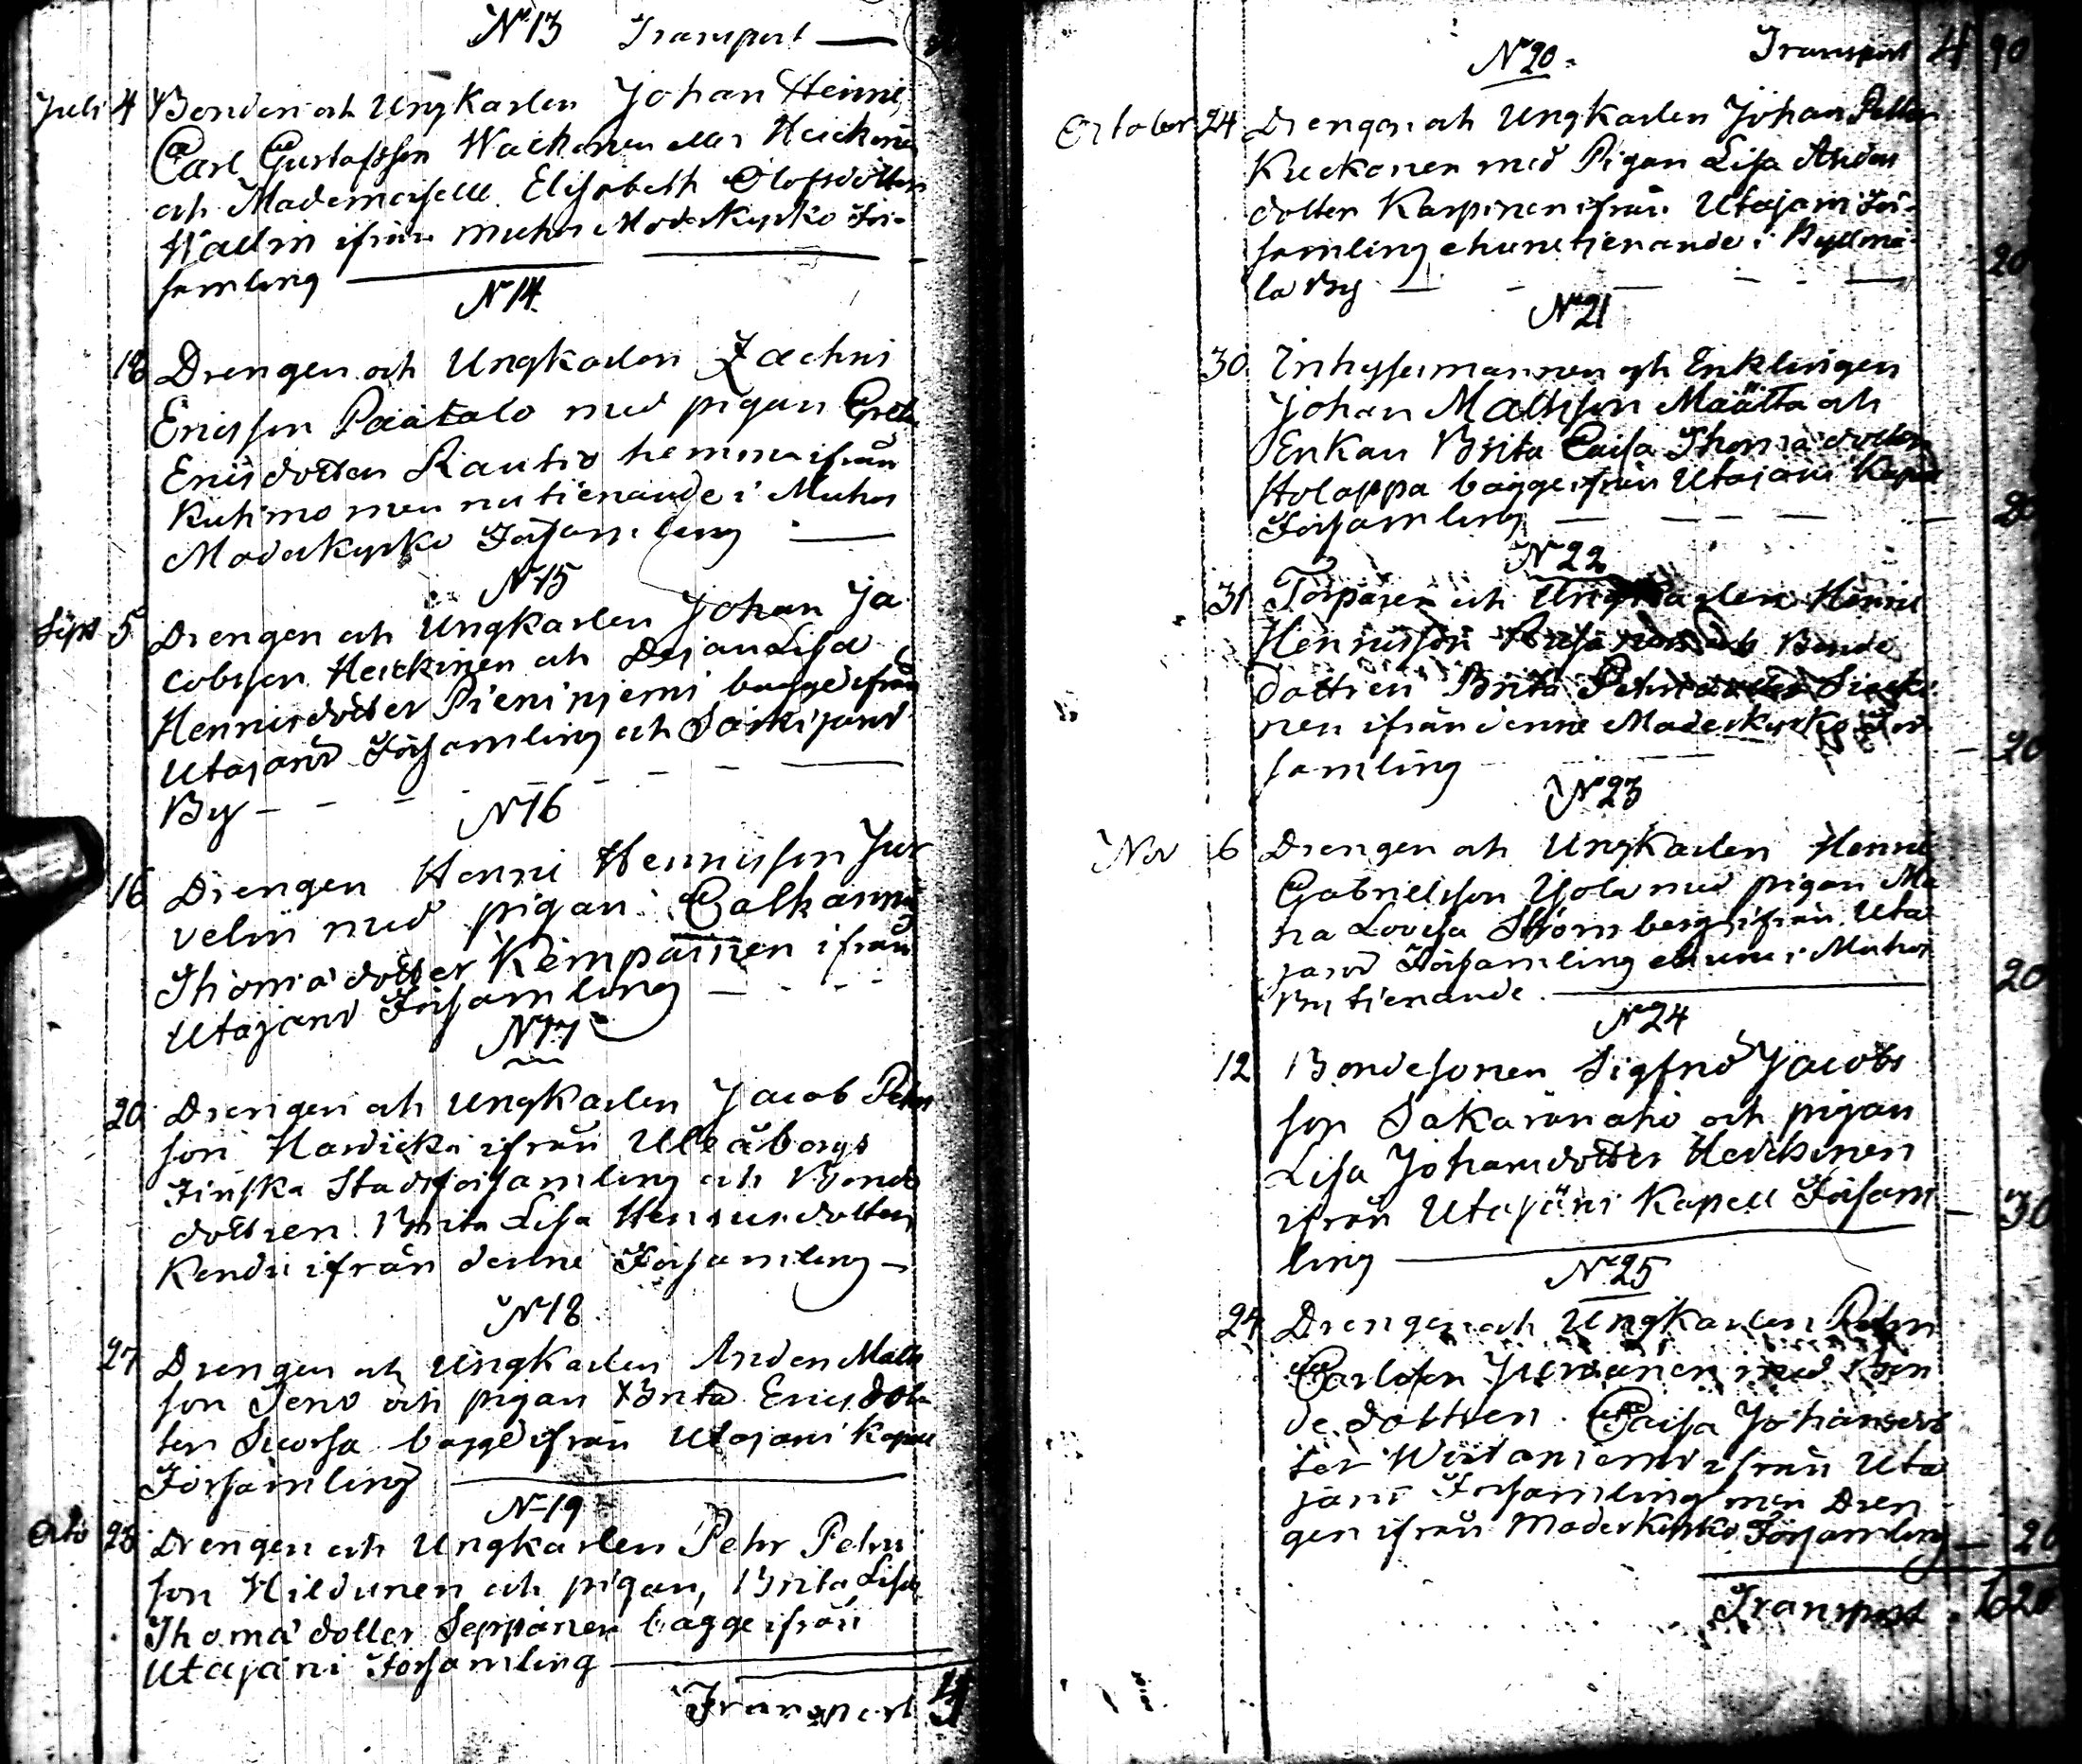 N 13 Transport
Juli 4 Bonden och Ungkarlen Johan Henric
Carl Gustafsson Wackonen eller Heickinen
och Mademoiselle Elisabeth Olofsdotter
Wallin ifrån Muhos Moderkyrko För-
samling
N 14
18 Drengen och Ungkarlen Zachris
Ericsson Päätalo med pigan Greta
Ericsdotter Rautio hemma ifrån
Kuhmo men nu tienande i Muhos
Moderkyrko Församling
N 15
Sept 5 Drengen och Ungkarlen Johan Ja
cobsson Heickinen och Lisa
Henricsdotter Pieniniemi bägge ifrån
Utajärvi Församling och Särkijärvi
By
N 16
16 Drengen Henric Henricsson Jur
velin med pigan Catharina
Thomædotter Kempainen ifrån
Utajärvi Församling
N 17
20 Drengen och Ungkarlen Jacob Pehr
son Hawicka ifrån Uleåborgs
Finska Stadsförsamling och Bonde
dottren Brita Lisa Henricsdotter
ifrån denne Församling
N 18
27 Drengen och Ungkarlen Anders Matts
son Tervo och pigan Brita Ericsdot-
ter Suorsa bägge ifrån Utajärvi Kapell
Församling
N 19
Octo 23 Drengen och Ungkarlen Pehr Pehrs
son Hildunen och pigan Brita Lisa
Thomædotter Seppänen bägge ifrån
Utajärvi Församling
Transport 4
N 20 Transport 4 90
October 24 Drengen och Ungkarlen Johan Petter
Kuckonen med Pigan Lisa Anders
dotter Karpinen ifrån Utajärvi För-
samling ehuru tienande i Kyllmä-
lä By 20
N 21
30 Inhysesmannen och Enklingen
Johan Mattsson Määtta och
Enkan Brita Caisa Thomædotter
Holappa bägge ifrån Utajärvi Kapell
Församling 20
N 22
31 Torparen och Ungkarlen Henric
Henricsson och Bonde
dottren Brita Pehrsdotter
nen ifrån denne Moderkyrko För
samling 20
N 23
Nov 6 Drengen och Ungkarlen Henric
Gabrielsson Ylola med pigan Ma
ria Lovisa Strömberg ifrån Uta
järvi Församling ehuru i Muhos
By tienande 20
N 24
12 Bondesonen Sigfrid Jacobs
son Sakaranaho och pigan
Lisa Johansdotter Heickinen
ifrån Utajärvi Kapell Försam
ling 30
N 25
24 Drengen och Ungkarlen Pehr
Carlsson med Bon
de dottren Caisa Johansdot
ter Wiitaniemi ifrån Uta
järvi Församling men Dren
gen ifrån Moderkyrko Församling 20
Transport 6 20